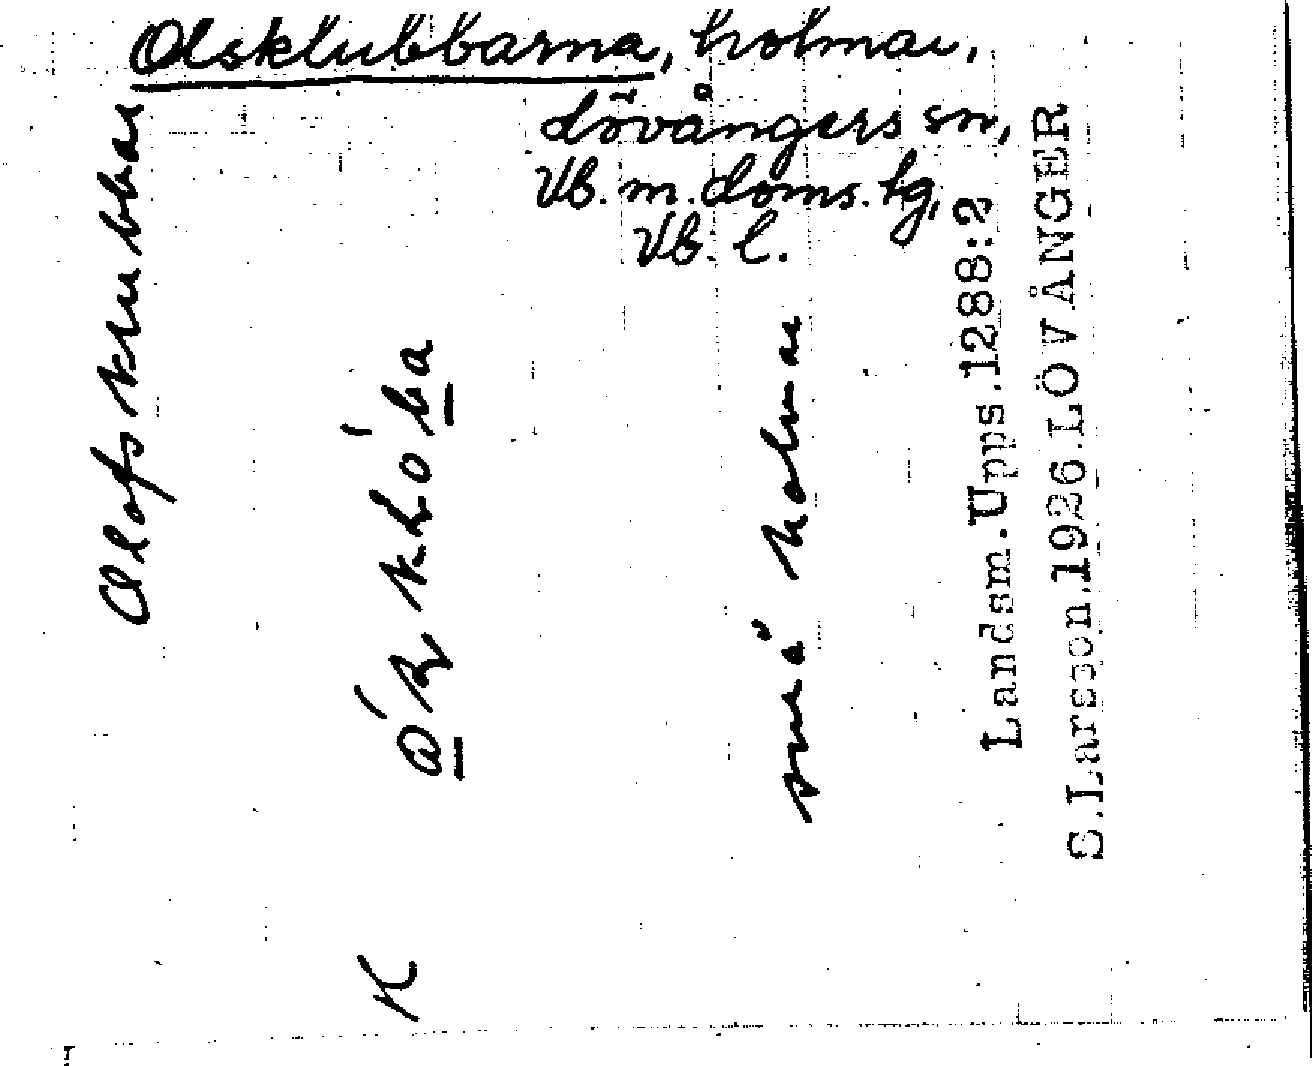 Olsklubbarna, holmar,
Lövångers sn,
Vb. m. doms. tg,
Vb. l.
Olofskrubbar
K
små holmar
Landsm.Upps.1288:2
S.Larsson.1926.LÖVÅNGER